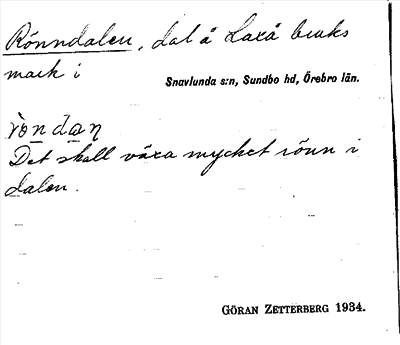 Rönndalen, dal å Laxå bruks
mark i
Snavlunda s:n, Sundbo hd, Örebro län.
ròn dan
Det skall växa mycket rönn i
dalen.
GÖRAN ZETTERBERG 1934.